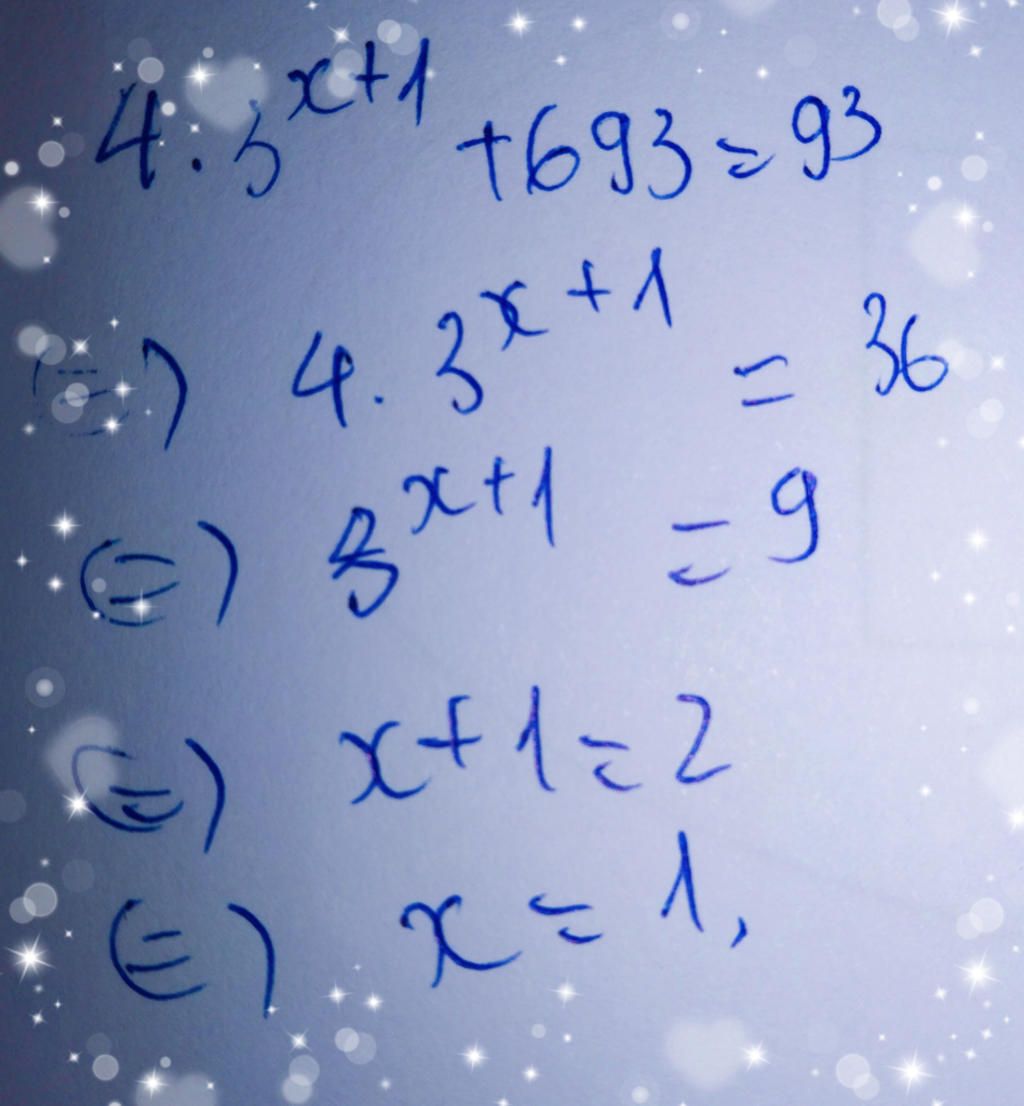 4.3^{x+1} +693=93
(=) 4.3^{x+1} = 36
(=) 3^{x+1} = 9
(=) x+1=2
(=) x=1,